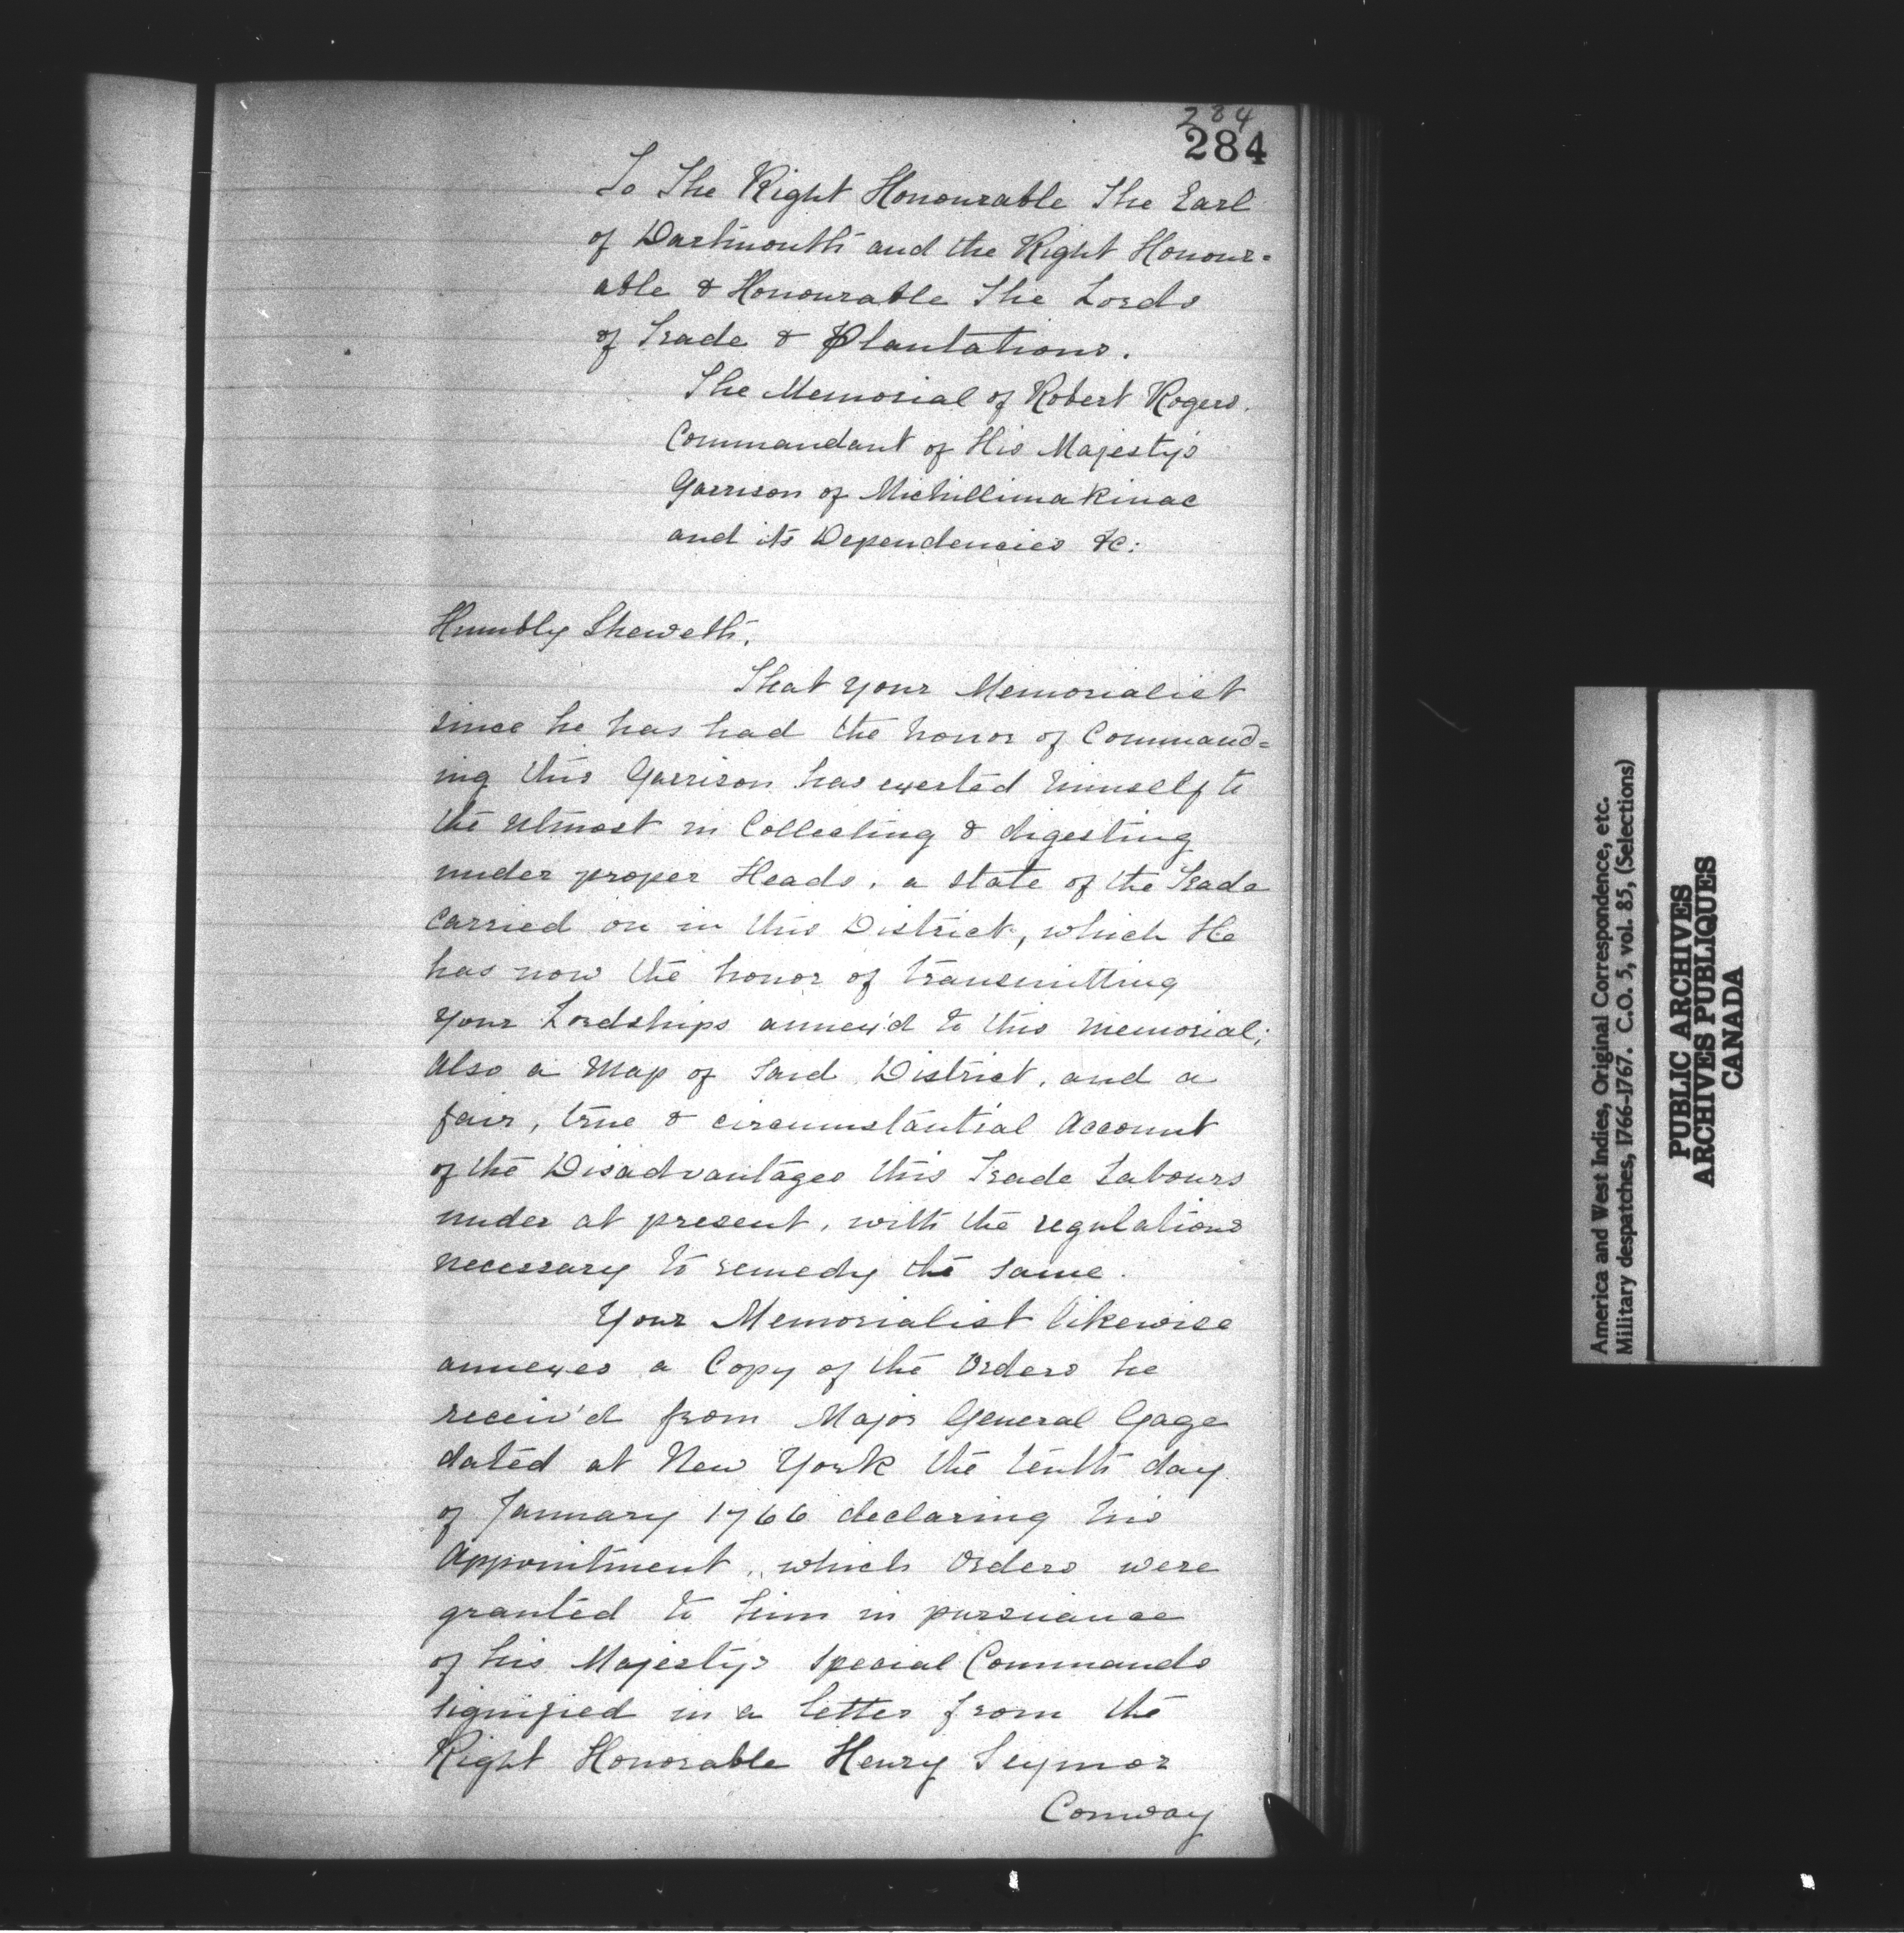 284
284
To The Right Honourable The Earl
of Dartmouth and the Right Honour=
able & Honourable The Lords
of Trade & Plantations.
The Memorial of Robert Rogers.
Commandant of His Majesty's
Garrison of Michillimakinac
and its Dependencies &c:
Humbly Sheweth,
That your Memorialist
since he has had the honor of Command=
ing this Garrison has exerted himself to
the utmost in Collecting & digesting
under proper Heads, a state of the Trade
Carried on in this District, which He
has now the honor of transmitting
your Lordships annex'd to this memorial;
Also a Map of said District, and a
fair, true & circumstantial Account
of the Disadvantages this Trade Labours
under at present, with the regulations
necessary to remedy the same.
Your Memorialist likewise
annexes a Copy of the Orders he
receiv'd from Major General Gage
dated at New York the tenth day
of January 1766 declaring his
Appointment, which Orders were
granted to him in pursuance
of his Majesty's Special Commands
signified in a letter from the
Right Honorable Henry Seymor
Conway
America and West Indies, Original Correspondence, etc.
Military despatches, 1766-1767. C.O. 5, vol. 85, (Selections)
PUBLIC ARCHIVES
ARCHIVES PUBLIQUES
CANADA